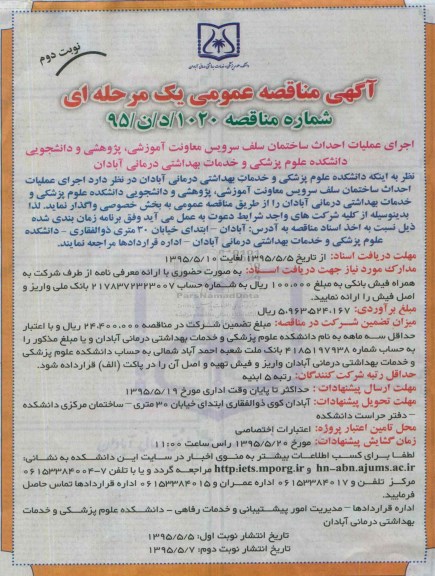 دانشکده علوم پزشکی و خدمات بهداشتی درمانی آبادان
نوبت دوم
آگهی مناقصه عمومی یک مرحله ای
شماره مناقصه ۱۰۲۰/د/ن/۹۵
اجرای عملیات احداث ساختمان سلف سرویس معاونت آموزشی، پژوهشی و دانشجویی
دانشکده علوم پزشکی و خدمات بهداشتی درمانی آبادان
نظر به اینکه دانشکده علوم پزشکی و خدمات بهداشتی درمانی آبادان در نظر دارد اجرای عملیات
احداث ساختمان سلف سرویس معاونت آموزشی، پژوهشی و دانشجویی دانشکده علوم پزشکی و
خدمات بهداشتی درمانی آبادان را از طریق مناقصه عمومی به بخش خصوصی واگذار نماید. لذا
بدینوسیله از کلیه شرکت های واجد شرایط دعوت به عمل می آید وفق برنامه زمان بندی شده
ذیل نسبت به اخذ اسناد مناقصه به آدرس: آبادان – ابتدای خیابان ۳۰ متری ذوالفقاری - دانشکده
علوم پزشکی و خدمات بهداشتی درمانی آبادان – اداره قراردادها مراجعه نمایند.
مهلت دریافت اسناد: از تاریخ ۱۳۹۵/۵/۵ لغایت ۱۳۹۵/۵/۱۰
مدارک مورد نیاز جهت دریافت اسناد: به صورت حضوری با ارائه معرفی نامه از طرف شرکت به
همراه فیش بانکی به مبلغ ۱۰۰.۰۰۰ ریال به شماره حساب ۲۱۷۸۳۷۲۳۲۳۰۰۷ بانک ملی واریز و
اصل فیش را ارائه نمایید.
مبلغ برآوردی: ۵.۹۶۳.۵۲۴.۱۶۷ ریال
میزان تضمین شرکت در مناقصه: مبلغ تضمین شرکت در مناقصه ۲۴.۴۰۰.۰۰۰ ریال و با اعتبار
حداقل سه ماهه به نام دانشکده علوم پزشکی و خدمات بهداشتی درمانی آبادان و یا مبلغ مذکور را
به حساب شماره ۴۱۸۵۱۹۷۹۳۸ بانک ملت شعبه احمد آباد شمالی به حساب دانشکده علوم پزشکی
و خدمات بهداشتی درمانی آبادان واریز و فیش تهیه و اصل آن را در پاکت (الف) قرارداده شود.
حداقل رتبه شرکت کنندگان: رتبه ۵ ابنیه
مهلت ارسال پیشنهادات: حداکثر تا پایان وقت اداری مورخ ۱۳۹۵/۵/۱۹
مهلت تحویل پیشنهادات: آبادان کوی ذوالفقاری ابتدای خیابان ۳۰ متری – ساختمان مرکزی دانشکده
– دفتر حراست دانشکده
محل تامین اعتبار پروژه: اعتبارات اختصاصی
زمان گشایش پیشنهادات: مورخ ۱۳۹۵/۵/۲۰ راس ساعت ۱۱:۰۰
لطفا برای کسب اطلاعات بیشتر به منوی اخبار در سایت این دانشکده به نشانی:
hn-abn.ajums.ac.ir و http:iets.mporg.ir مراجعه گردد و یا با تلفن ۷-۰۶۱۵۳۳۸۴۰۰۴
مرکز تلفن و ۰۶۱۵۳۳۸۴۰۱۷ اداره عمران و ۰۶۱۵۳۳۸۴۰۱۵ اداره قراردادها تماس حاصل
فرمایید.
اداره قراردادها – مدیریت امور پشتیبانی و خدمات رفاهی – دانشکده علوم پزشکی و خدمات
بهداشتی درمانی آبادان
تاریخ انتشار نوبت اول: ۱۳۹۵/۵/۵
تاریخ انتشار نوبت دوم: ۱۳۹۵/۵/۷